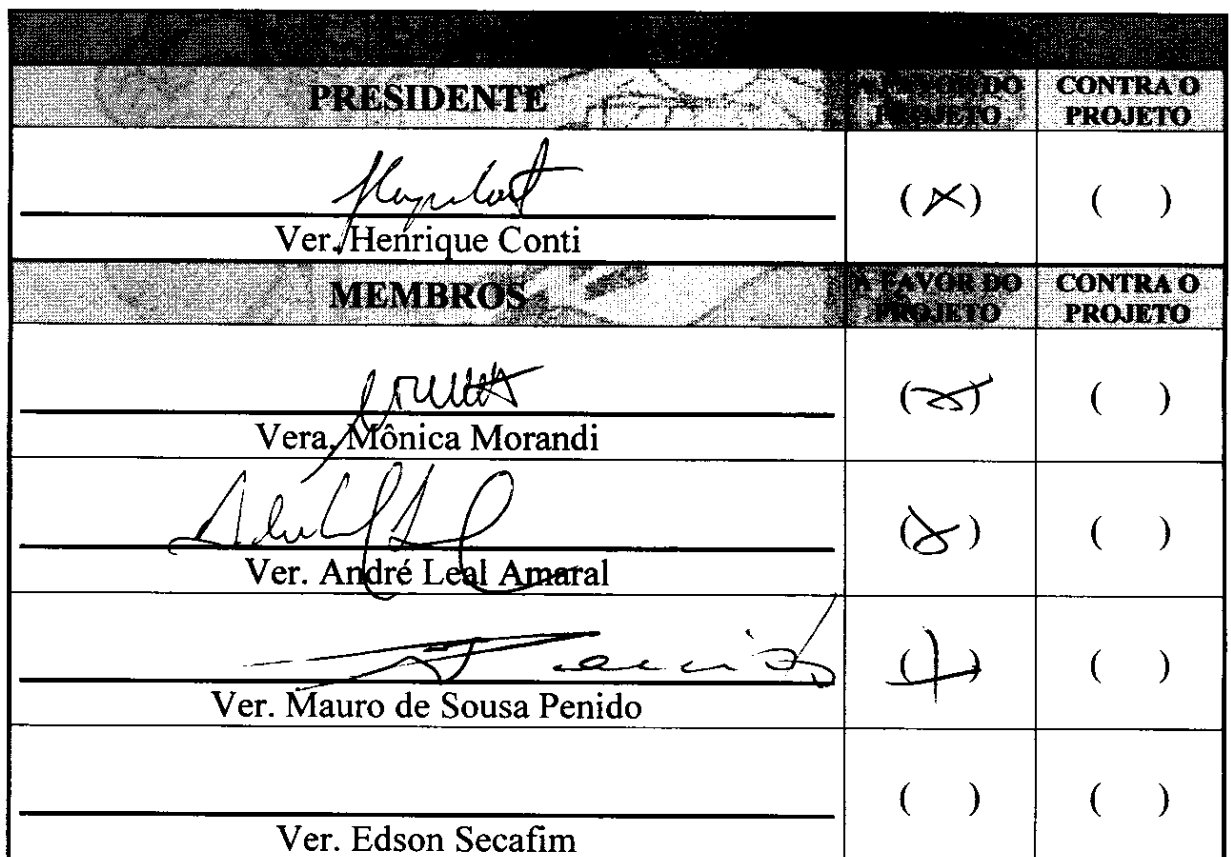 PRESIDENTE
A FAVOR DO PROJETO
CONTRA O PROJETO
(X)
( )
Ver. Henrique Conti
MEMBROS
A FAVOR DO PROJETO
CONTRA O PROJETO
(X)
( )
Vera. Mônica Morandi
(X)
( )
Ver. André Leal Amaral
( )
( )
Ver. Mauro de Sousa Penido
( )
( )
Ver. Edson Secafim